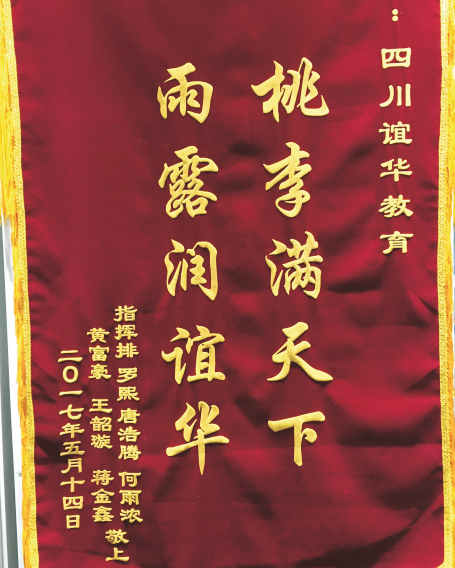 ：四川谊华教育
桃李满天下
雨露润谊华
指挥排 罗熙 唐浩腾 何雨浓
黄富豪 王韶漩 蒋金鑫 敬上
二〇一七年五月十四日